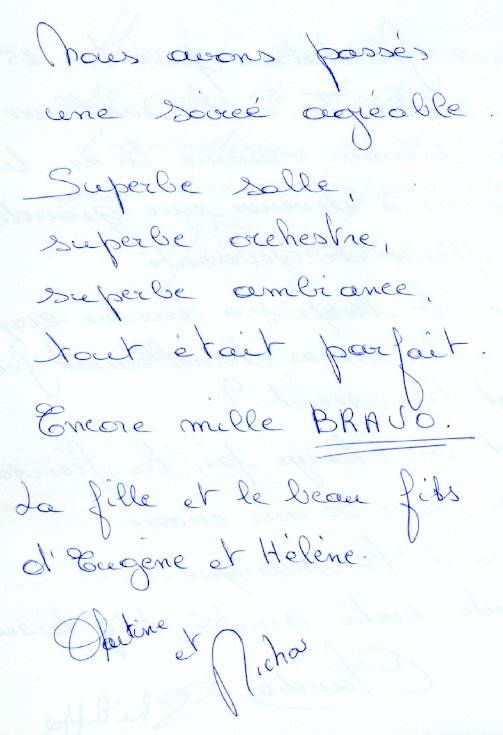 Nous avons passés
une soireé agréable.
Superbe salle,
superbe orchestre,
superbe ambiance,
tout était parfait.
Encore mille BRAVO.
La fille et le beau fils
d'Eugène et Hélène.
et